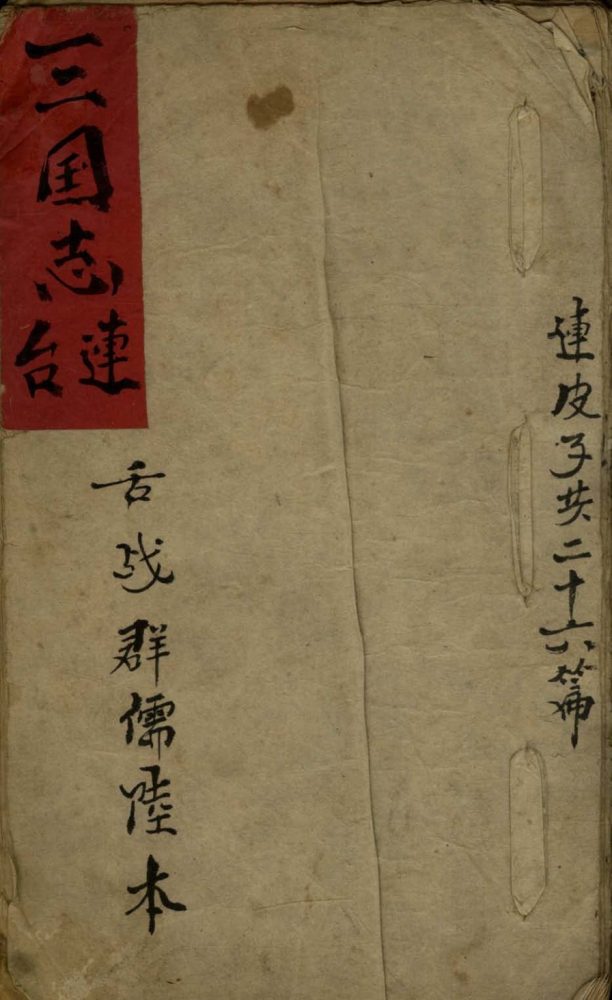 連皮子共二十六篇
三国志
連台
舌战群儒陸本